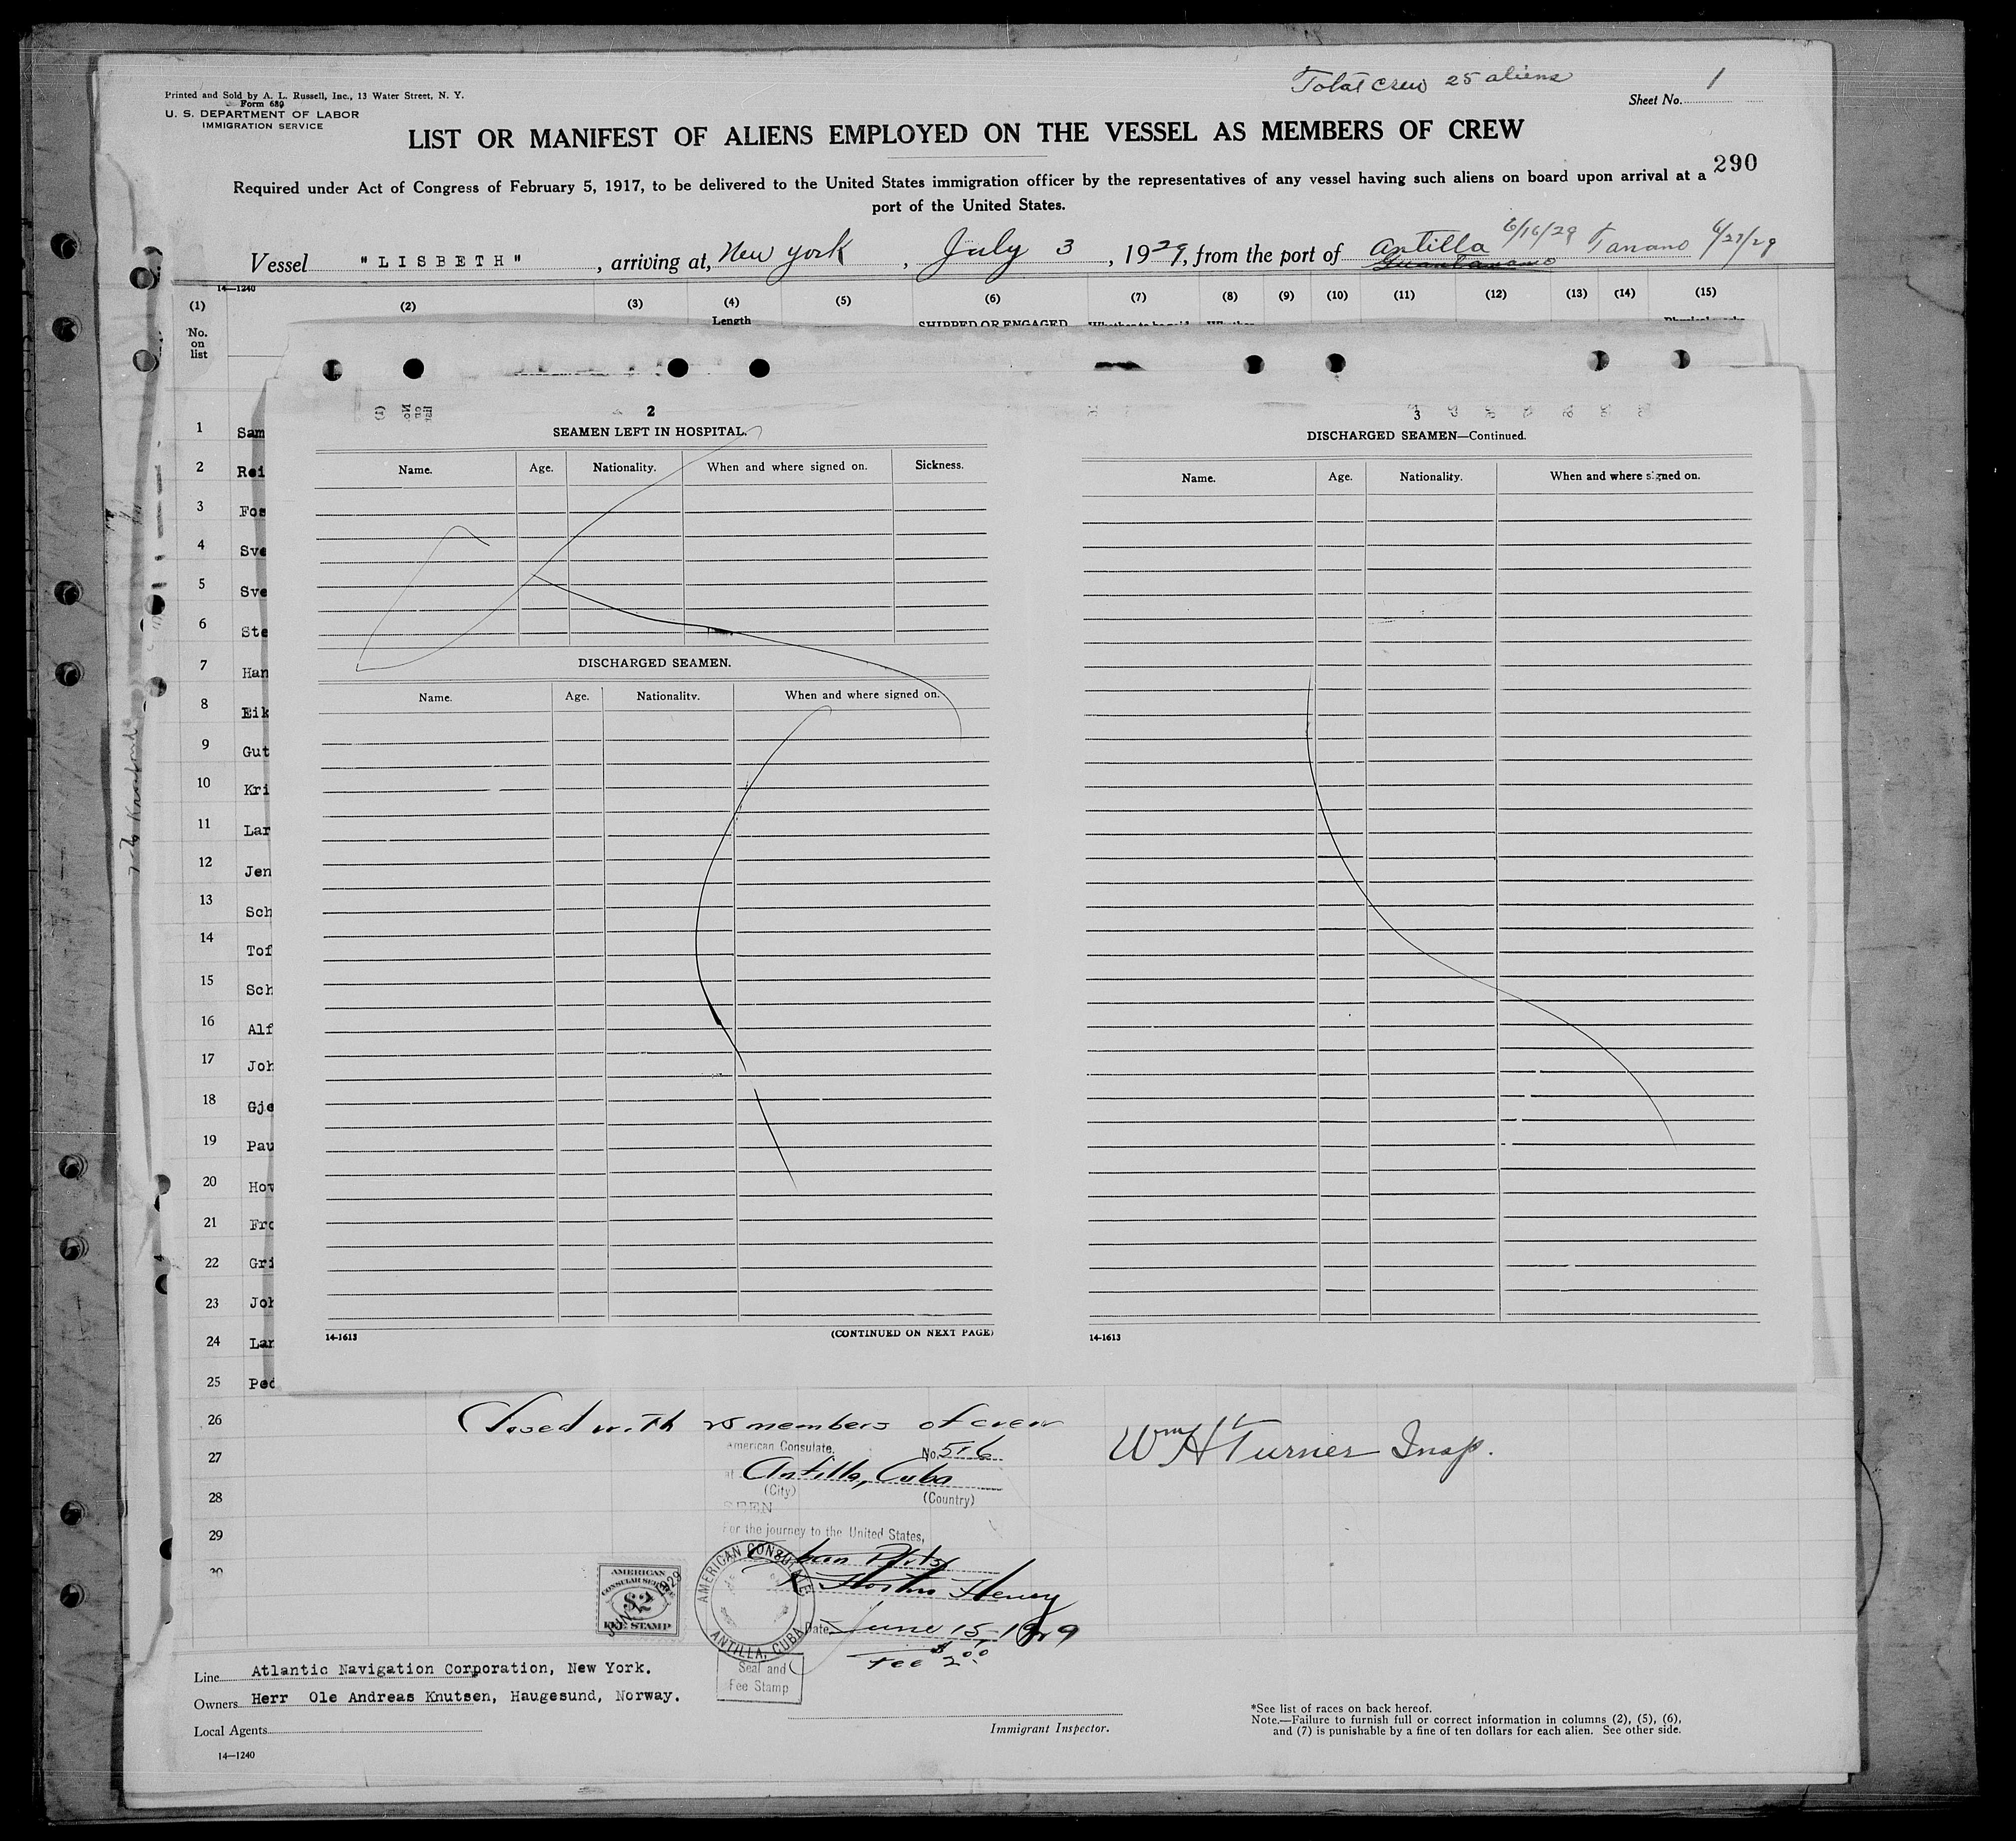 Total Crew 25 aliens
1
Printed and Sold by A. L. Russell, Inc., 13 Water Street, N. Y.
Form 689
U. S. DEPARTMENT OF LABOR
IMMIGRATION SERVICE
Sheet No.
LIST OR MANIFEST OF ALIENS EMPLOYED ON THE VESSEL AS MEMBERS OF CREW
290
Required under Act of Congress of February 5, 1917, to be delivered to the United States immigration officer by the representatives of any vessel having such aliens on board upon arrival at a
port of the United States.
Vessel "LISBETH", arriving at, New York, July 3, 1929, from the port of Antilla 6/16/29 Tanamo 6/27/29
Guantanamo
14—1240
(1) (2) (3) (4) (5) (6) (7) (8) (9) (10) (11) (12) (13) (14) (15)
No. on list
Length
SHIPPED OR ENGAGED
2
SEAMEN LEFT IN HOSPITAL.
Name. Age. Nationality. When and where signed on. Sickness.
DISCHARGED SEAMEN.
Name. Age. Nationality. When and where signed on.
14-1613
(CONTINUED ON NEXT PAGE)
3
DISCHARGED SEAMEN—Continued.
Name. Age. Nationality. When and where signed on.
14-1613
1 Sam
2 Rei
3 Fos
4 Sve
5 Sve
6 Ste
7 Han
8 Eik
9 Gut
10 Kri
11 Lar
12 Jen
13 Sch
14 Tof
15 Sch
16 Alf
17 Joh
18 Gje
19 Pau
20 Hov
21 Fro
22 Gri
23 Joh
24 Lar
25 Ped
26
27
28
29
30
Closed with 25 members of crew
Wm H Turner Insp.
American Consulate,
No. 516
at Antilla, Cuba
(City) (Country)
SEEN
For the journey to the United States,
Henry
Date June 15-1929
Fee $2.00
AMERICAN CONSULAR SERVICE
$2
FEE STAMP
AMERICAN CONSULATE
ANTILLA, CUBA
Seal and
Fee Stamp
Line Atlantic Navigation Corporation, New York.
Owners Herr Ole Andreas Knutsen, Haugesund, Norway.
Local Agents
Immigrant Inspector.
14—1240
*See list of races on back hereof.
Note.—Failure to furnish full or correct information in columns (2), (5), (6),
and (7) is punishable by a fine of ten dollars for each alien. See other side.